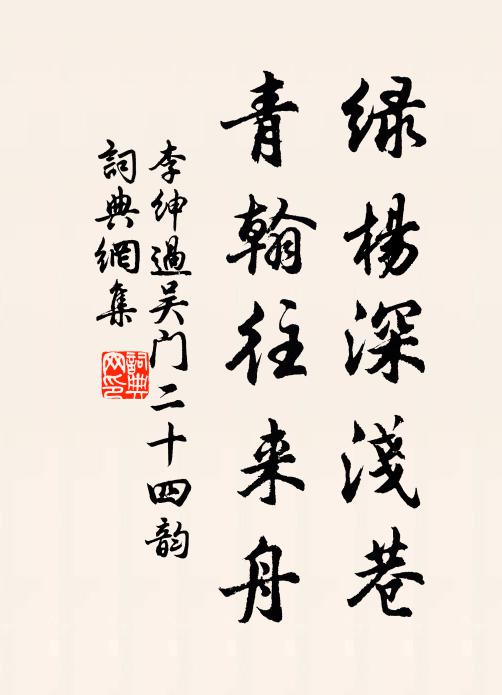 绿杨深淺巷
青翰往来舟
李绅過吴门二十四韵
詞典網集
詞典网印